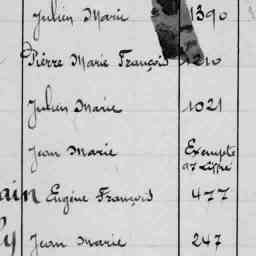 Julien Marie 1390
Pierre Marie François 1210
Julien Marie 1021
Jean Marie Exempté
Eugène François 477
Jean Marie 247